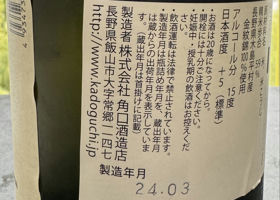 精米歩合 55%
長野県木島平村産
金紋錦100%使用
アルコール分 15度
日本酒度 +5(標準)
・お酒は20歳になってから。
・開栓には十分ご注意ください。
・妊娠中・授乳期の飲酒はお控えくだ
飲酒運転は法律で禁止されています。
製造年月は瓶詰め年月を、蔵出年月
は蔵からの出荷年月を表示していま
す。(蔵出年月は首掛に記載)
製造者 株式会社 角口酒造店
長野県飯山市大字常郷一一四七
http://www.kadoguchi.jp
製造年月
24.03